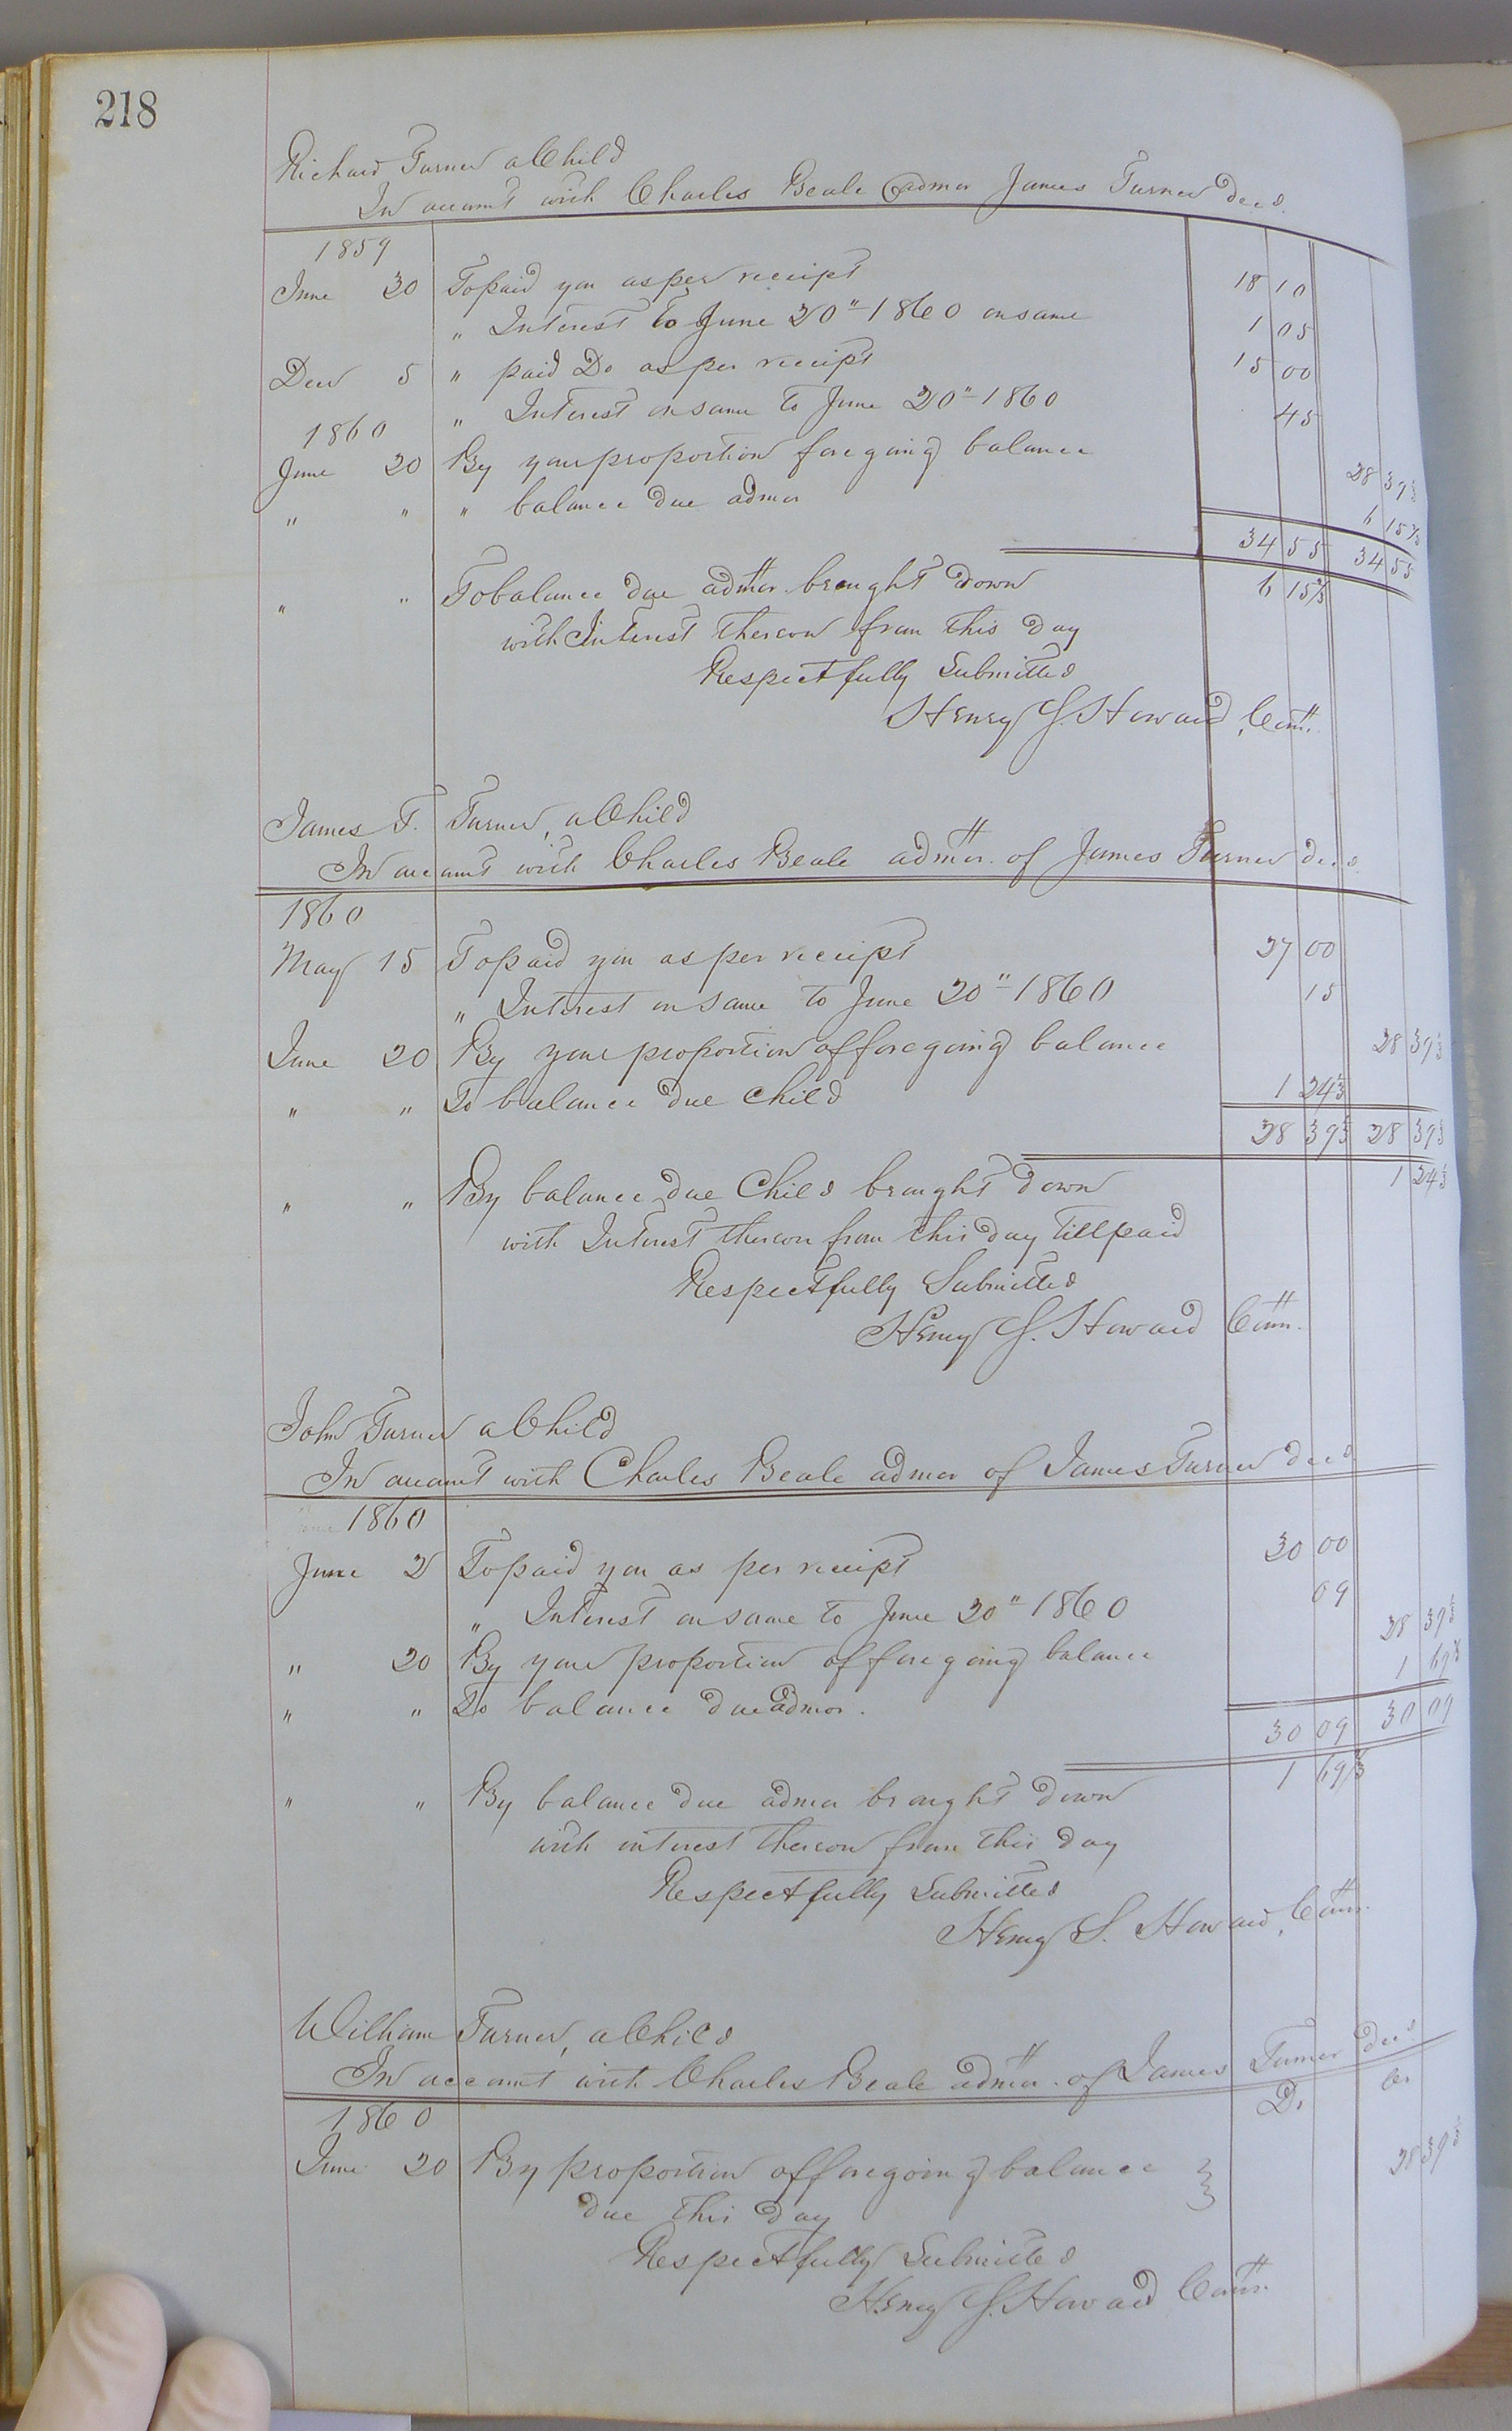 218
Richard Turner a Child
In account with Charles Beale admor James Turner decd.
1859
June 30 To paid you as per receipt 18 10
" Interest to June 20" 1860 on same 1 05
Decr 5 " paid Do as per receipt 15 00
1860 " Interest on same to June 20" 1860 45
June 20 By your proportion foregoing balance 28 39 1/3
" " " balance due admor 6 15 2/3
34 55 34 55
" " To balance due admor. brought down 6 15 2/3
with Interest thereon from this day
Respectfully Submitted
Henry S. Howard, Comr.
James T. Turner, a Child
In account with Charles Beale admor. of James Turner decd.
1860
May 15 To paid you as per receipt 27 00
" Interest on same to June 20" 1860 15
June 20 By your proportion of foregoing balance 28 39 1/3
" " To balance due Child 1 24 1/3
28 39 1/3 28 39 1/3
" " By balance due Child brought down 1 24 1/3
with Interest thereon from this day till paid
Respectfully Submitted
Henry S. Howard Comr.
John Turner a Child
In account with Charles Beale admor of James Turner decd
1860
June 2 To paid you as per receipt 30 00
" Interest on same to June 20" 1860 09
" 20 By your proportion of foregoing balance 28 39 1/3
" " To balance due admor. 1 69 2/3
30 09 30 09
" " By balance due admor brought down 1 69 2/3
with interest thereon from this day
Respectfully Submitted
Henry S. Howard, Comr.
William Turner, a Child
In account with Charles Beale admor. of James Turner decd.
1860 Dr Cr
June 20 By proportion of foregoing balance 28 39 1/3
due this day
Respectfully Submitted
Henry S. Howard Comr.